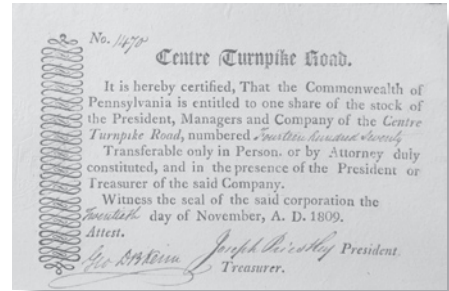 No. 1470
Centre Turnpike Road.
It is hereby certified, That the Commonwealth of
Pennsylvania is entitled to one share of the stock of
the President, Managers and Company of the Centre
Turnpike Road, numbered Fourteen hundred Seventy
Transferable only in Person. or by Attorney duly
constituted, and in the presence of the President or
Treasurer of the said Company.
Witness the seal of the said corporation the
Twentieth day of November, A. D. 1809.
Attest.
Joseph Priestley President.
Geo D B Keim
Treasurer.